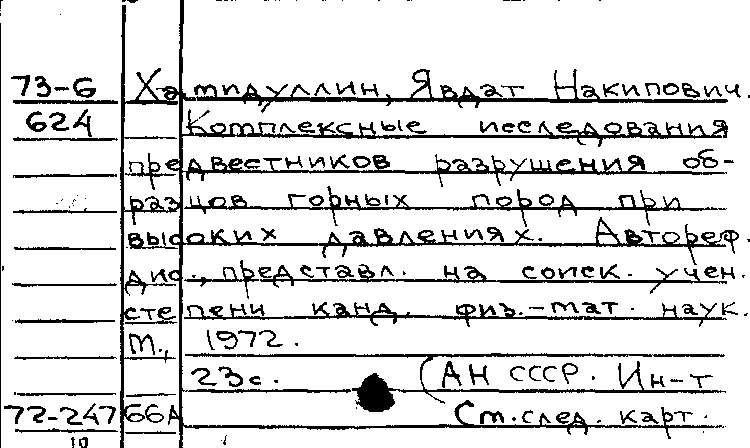 73-6 Хамидуллин, Явдат Накипович.
624 Комплексные исследования
предвестников разрушения об-
разцов горных пород при
высоких давлениях. Автореф.
дис., представл. на соиск. учен.
степени канд. физ.-мат. наук.
М., 1972.
23с. (АН СССР. Ин-т
72-247 66А См.след. карт.